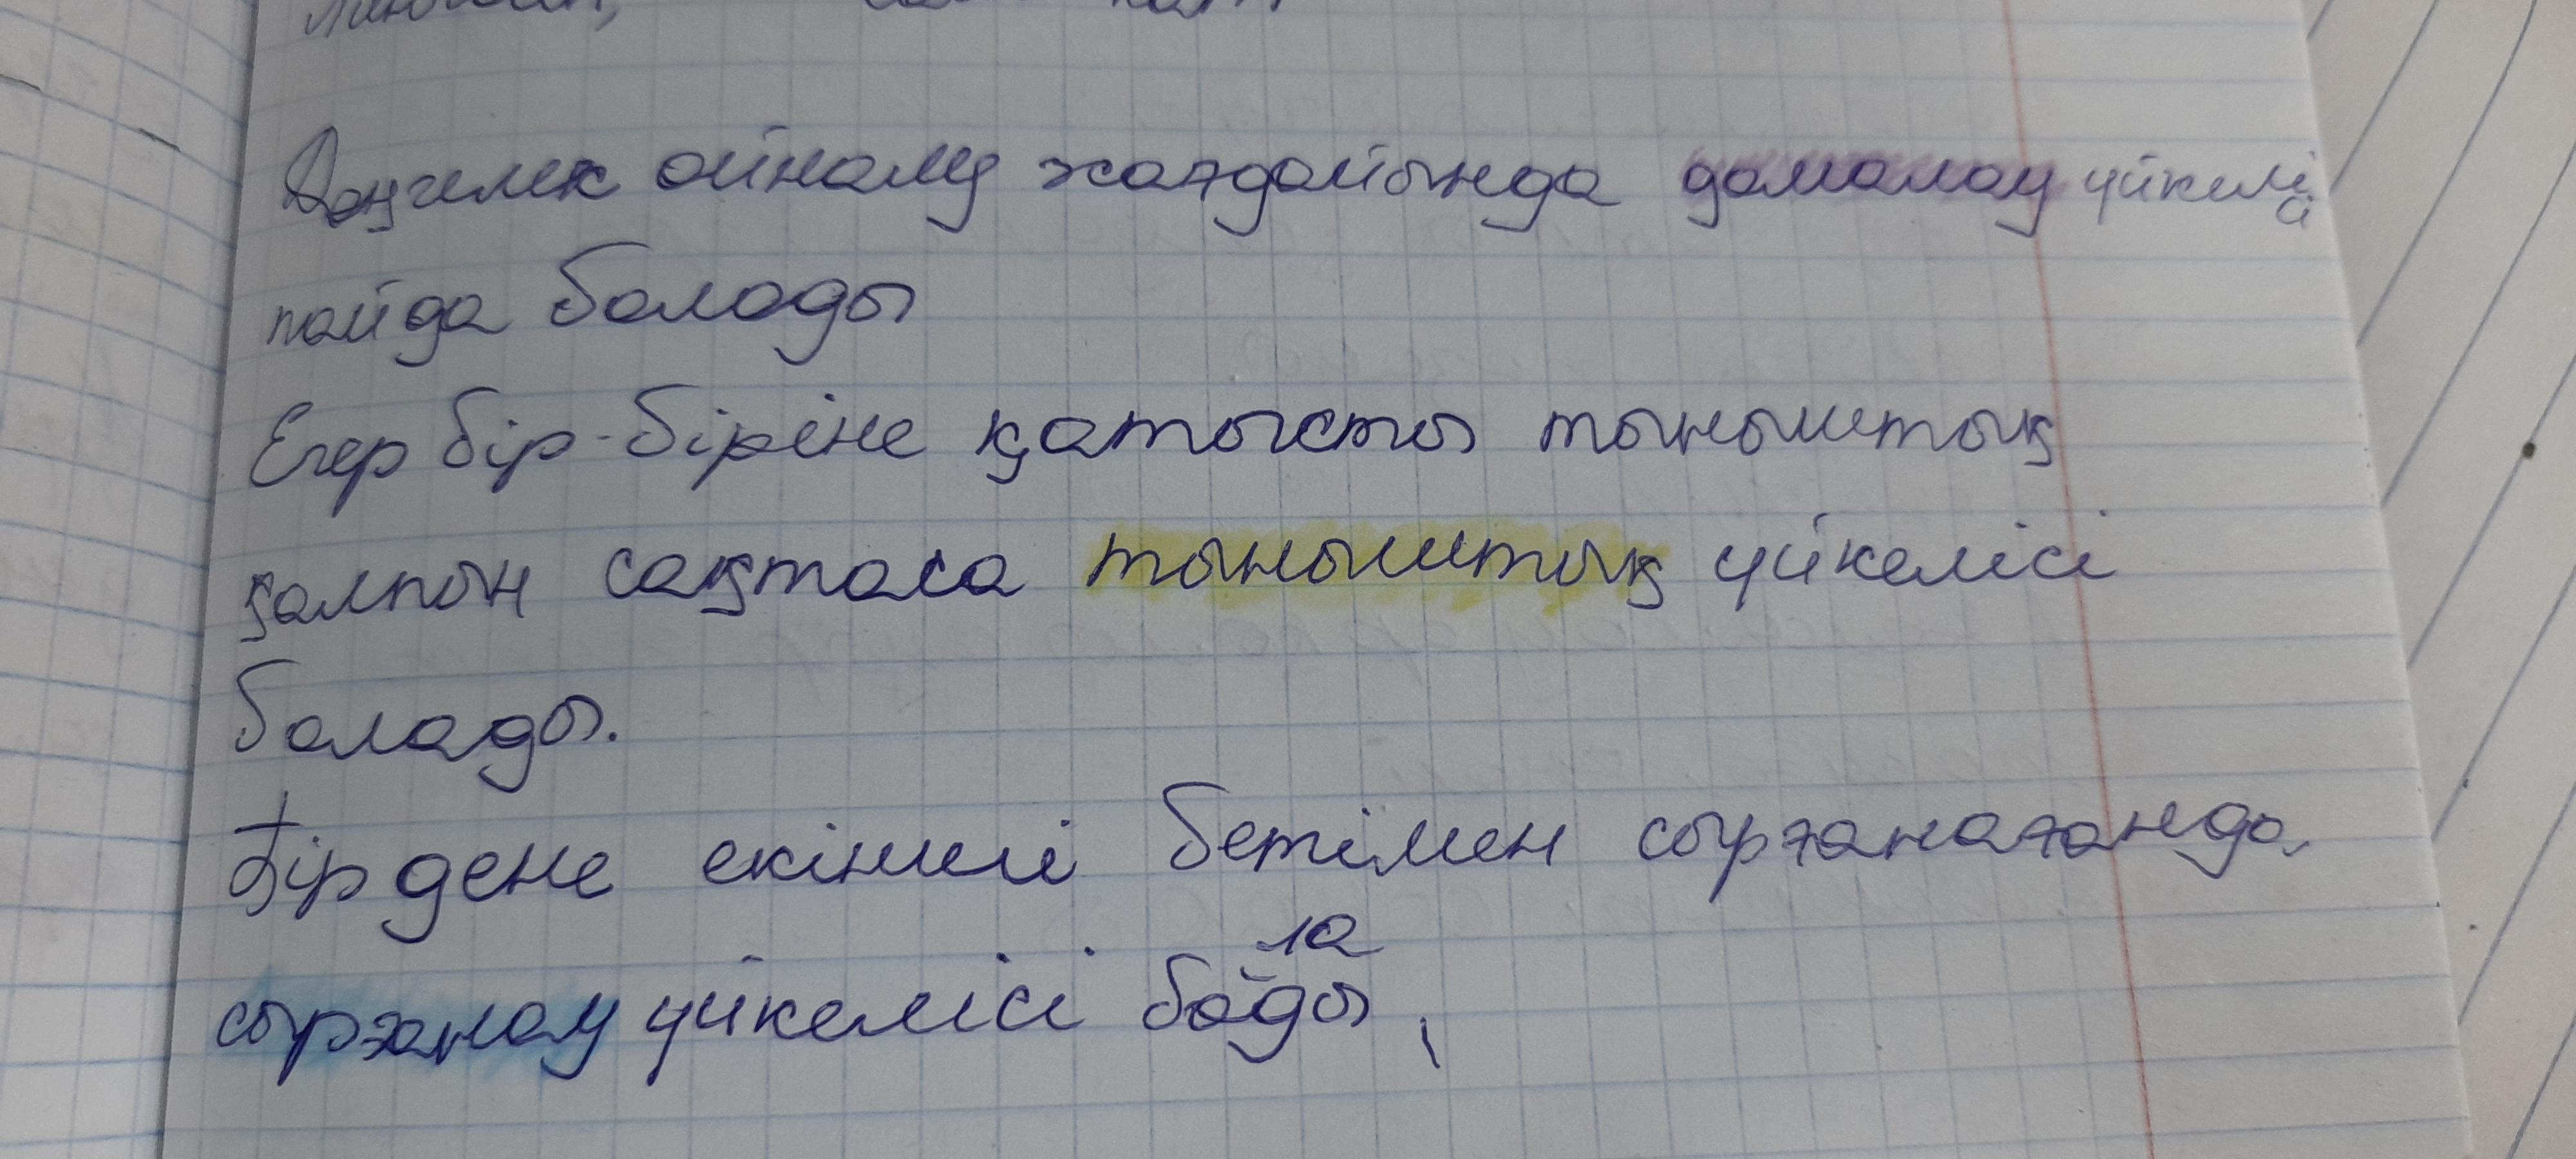 Доңгелек ойналу жағдайында домалау үйкелісі
пайда болады
Егер бір-біріне қатысты тыныштық
қалпын сақтаса тыныштық үйкелісі
болады.
Бір дене екінші бетімен сырғанағанда
сырғанау үйкелісі болады,